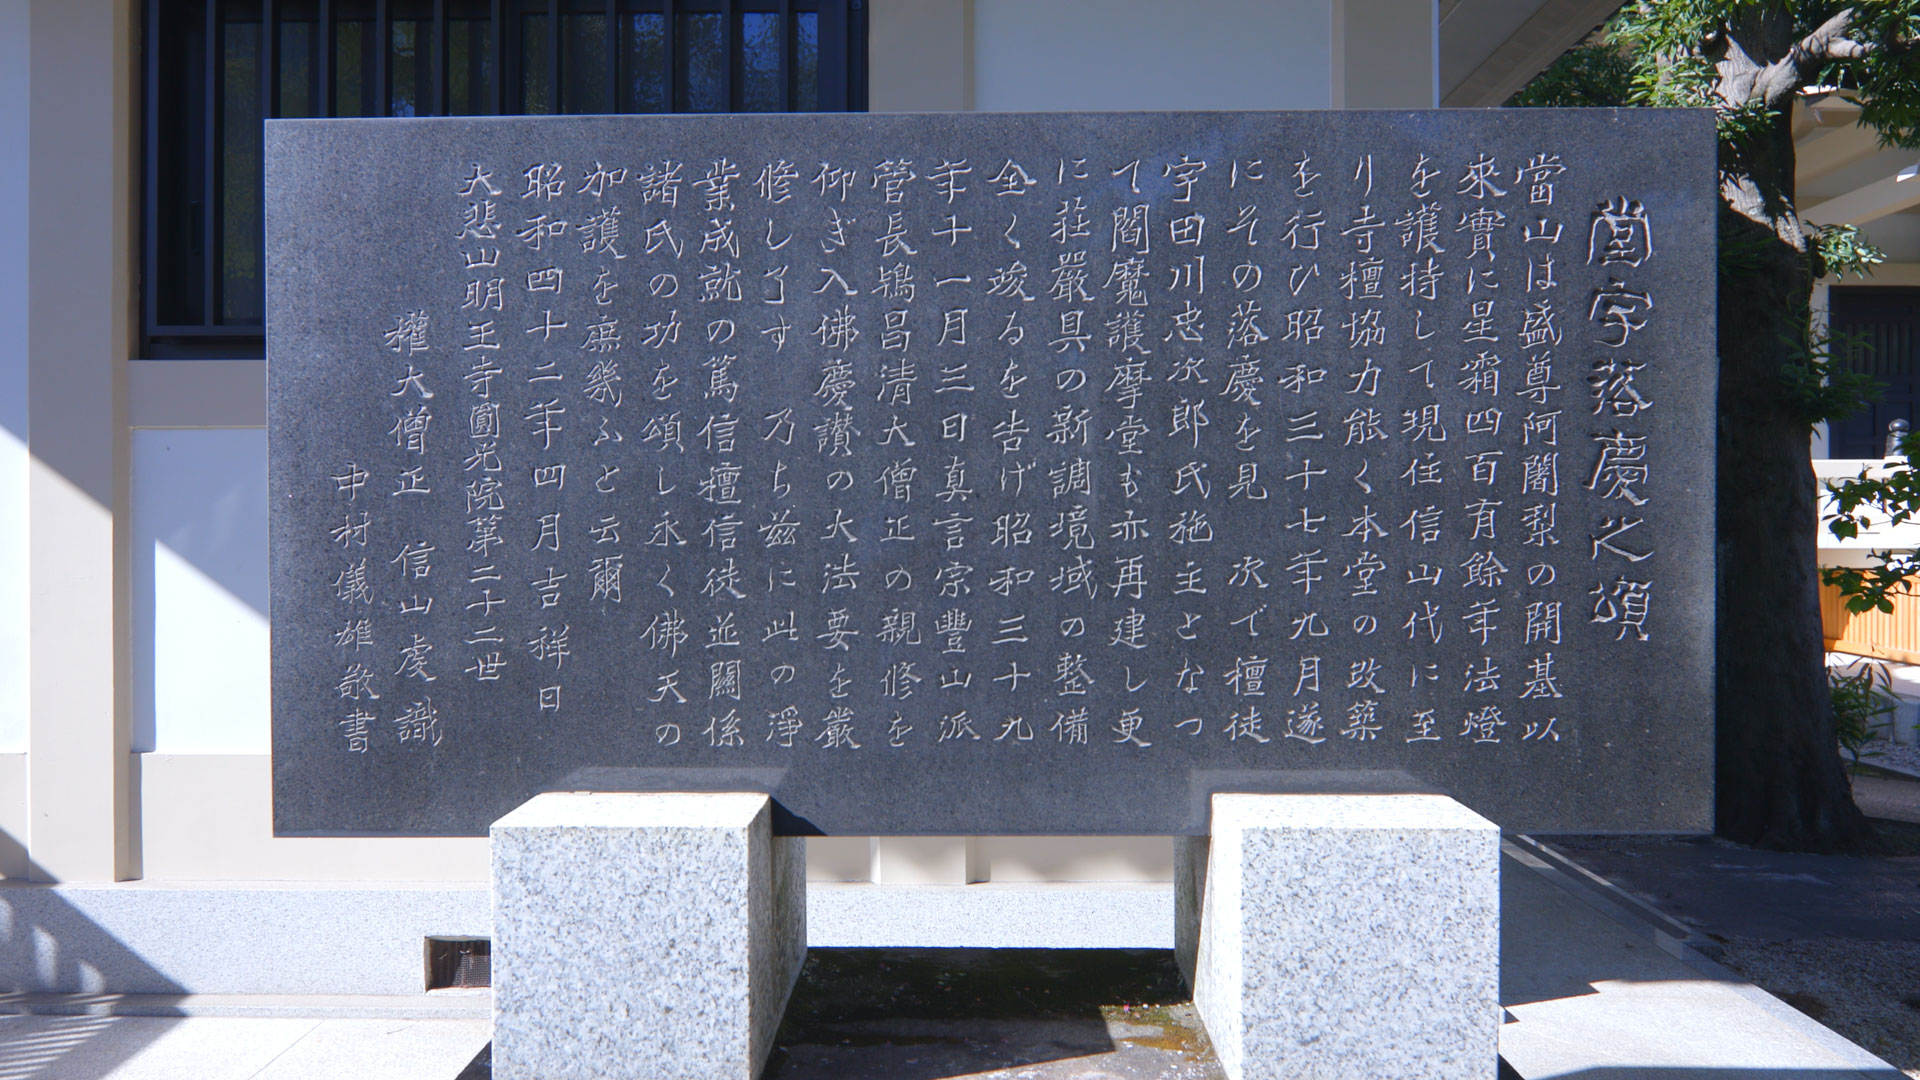 堂宇落慶之頌
當山は盛尊阿闍梨の開基以
來實に星霜四百有餘年法燈
を護持して現住信山代に至
り寺檀協力能く本堂の改築
を行ひ昭和三十七年九月遂
にその落慶を見　次で檀徒
宇田川忠次郎氏施主となつ
て閻魔護摩堂も亦再建し更
に莊嚴具の新調境域の整備
全く竣るを告げ昭和三十九
年十一月三日真言宗豐山派
管長鵜昌清大僧正の親修を
仰ぎ入佛慶讃の大法要を嚴
修し了す　乃ち茲に此の淨
業成就の篤信檀信徒並關係
諸氏の功を頌し永く佛天の
加護を庶幾ふと云爾
昭和四十二年四月吉祥日
大悲山明王寺圓光院第二十二世
權大僧正　信山虔識
中村儀雄敬書